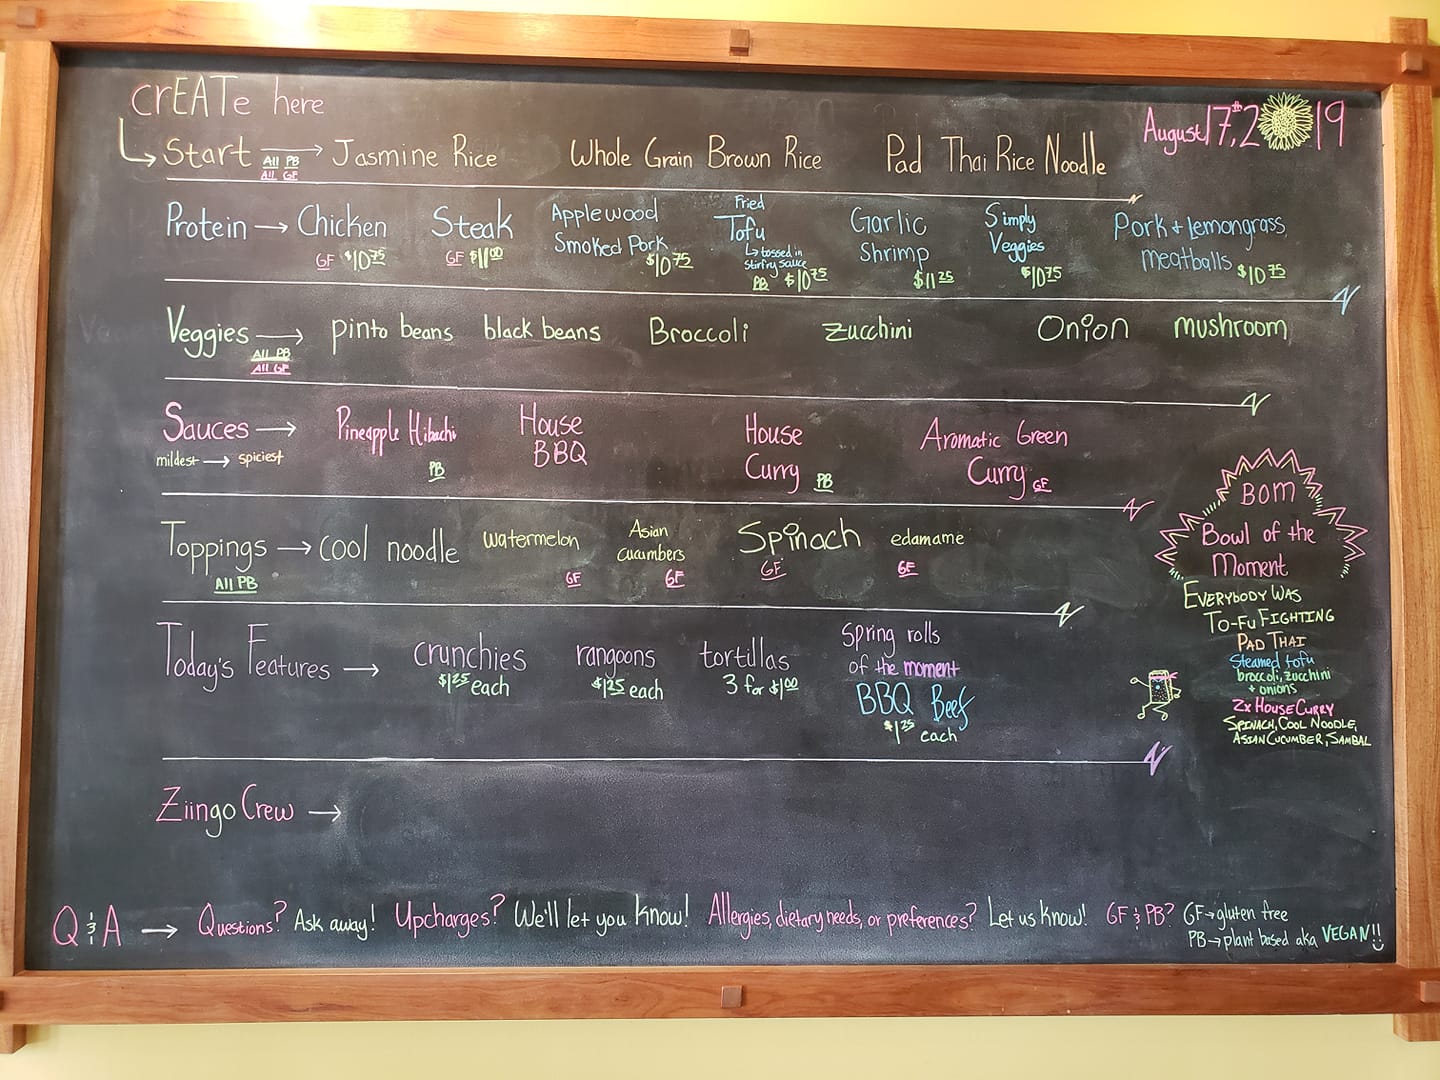 crEATe here
August 17th, 2019
Start → All PB All GF Jasmine Rice Whole Grain Brown Rice Pad Thai Rice Noodle
Protein → Chicken GF $10.75 Steak GF $11.00 Applewood Smoked Pork $10.75 Fried Tofu ↳ tossed in stirfry sauce PB $10.75 Garlic Shrimp $11.25 Simply Veggies $10.75 Pork + Lemongrass meatballs $10.75
Veggies → All PB All GF pinto beans black beans Broccoli zucchini Onion mushroom
Sauces → mildest → spiciest Pineapple Hibachi PB House BBQ House Curry PB Aromatic Green Curry GF
Toppings → All PB cool noodle watermelon GF Asian cucumbers GF Spinach GF edamame GF
Today's Features → crunchies $1.25 each rangoons $1.25 each tortillas 3 for $1.00 Spring rolls of the moment BBQ Beef $1.25 each
BOM
Bowl of the
Moment
Everybody Was
To-Fu Fighting
Pad Thai
Steamed tofu
broccoli, zucchini
+ onions
2x House Curry
Spinach, Cool Noodle,
Asian Cucumber, Sambal
Ziingo Crew →
Q & A → Questions? Ask away! Upcharges? We'll let you know! Allergies, dietary needs, or preferences? Let us know! GF & PB? GF → gluten free
PB → plant based aka VEGAN!!